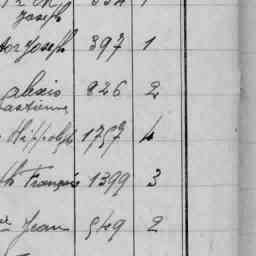 Joseph
Joseph 397 1
alexis 826 2
Hippolyte 1757 4
François 1399 3
Jean 549 2